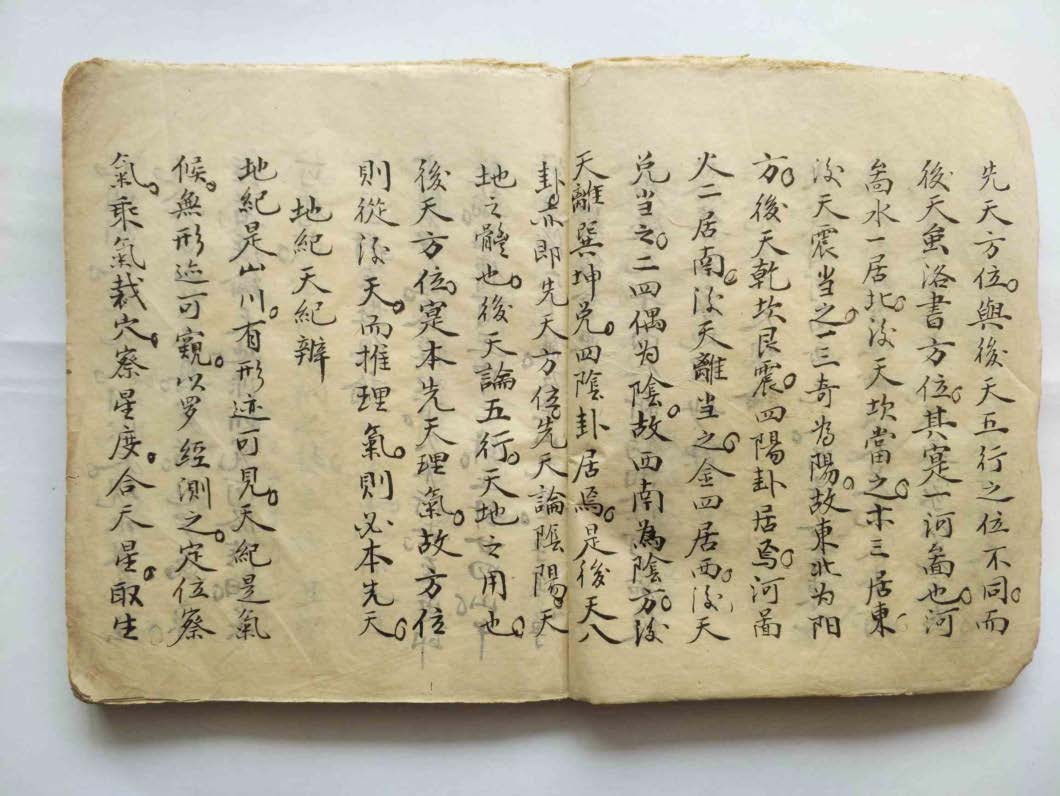 先天方位。與後天五行之位不同。而
後天虽洛書方位。其寔一河啚也。河
啚水一居北。後天坎當之。木三居東。
後天震当之。一三奇為陽。故東北为阳
方。後天乾坎艮震。四陽卦居焉。河啚
火二居南。後天離当之。金四居西。後天
兑当之。二四偶为陰。故西南為陰方。後
天離巽坤兑。四陰卦居焉。是後天八
卦。亦即先天方位。先天論陰陽。天
地之體也。後天論五行。天地之用也。
後天方位。寔本先天理氣。故方位
則從後天。而推理氣。則必本先天。
地紀天紀辨
地紀是山川。有形迹可見。天紀是氣
候。無形迹可窺。以罗經測之。定位察
氣。乘氣裁穴。察星度。合天星。取生